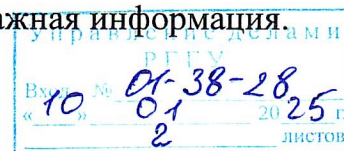 ажная информация.
Управление делами
РГГУ
Вход. № 01-38-28
«10» 01 2025 г.
2 листов